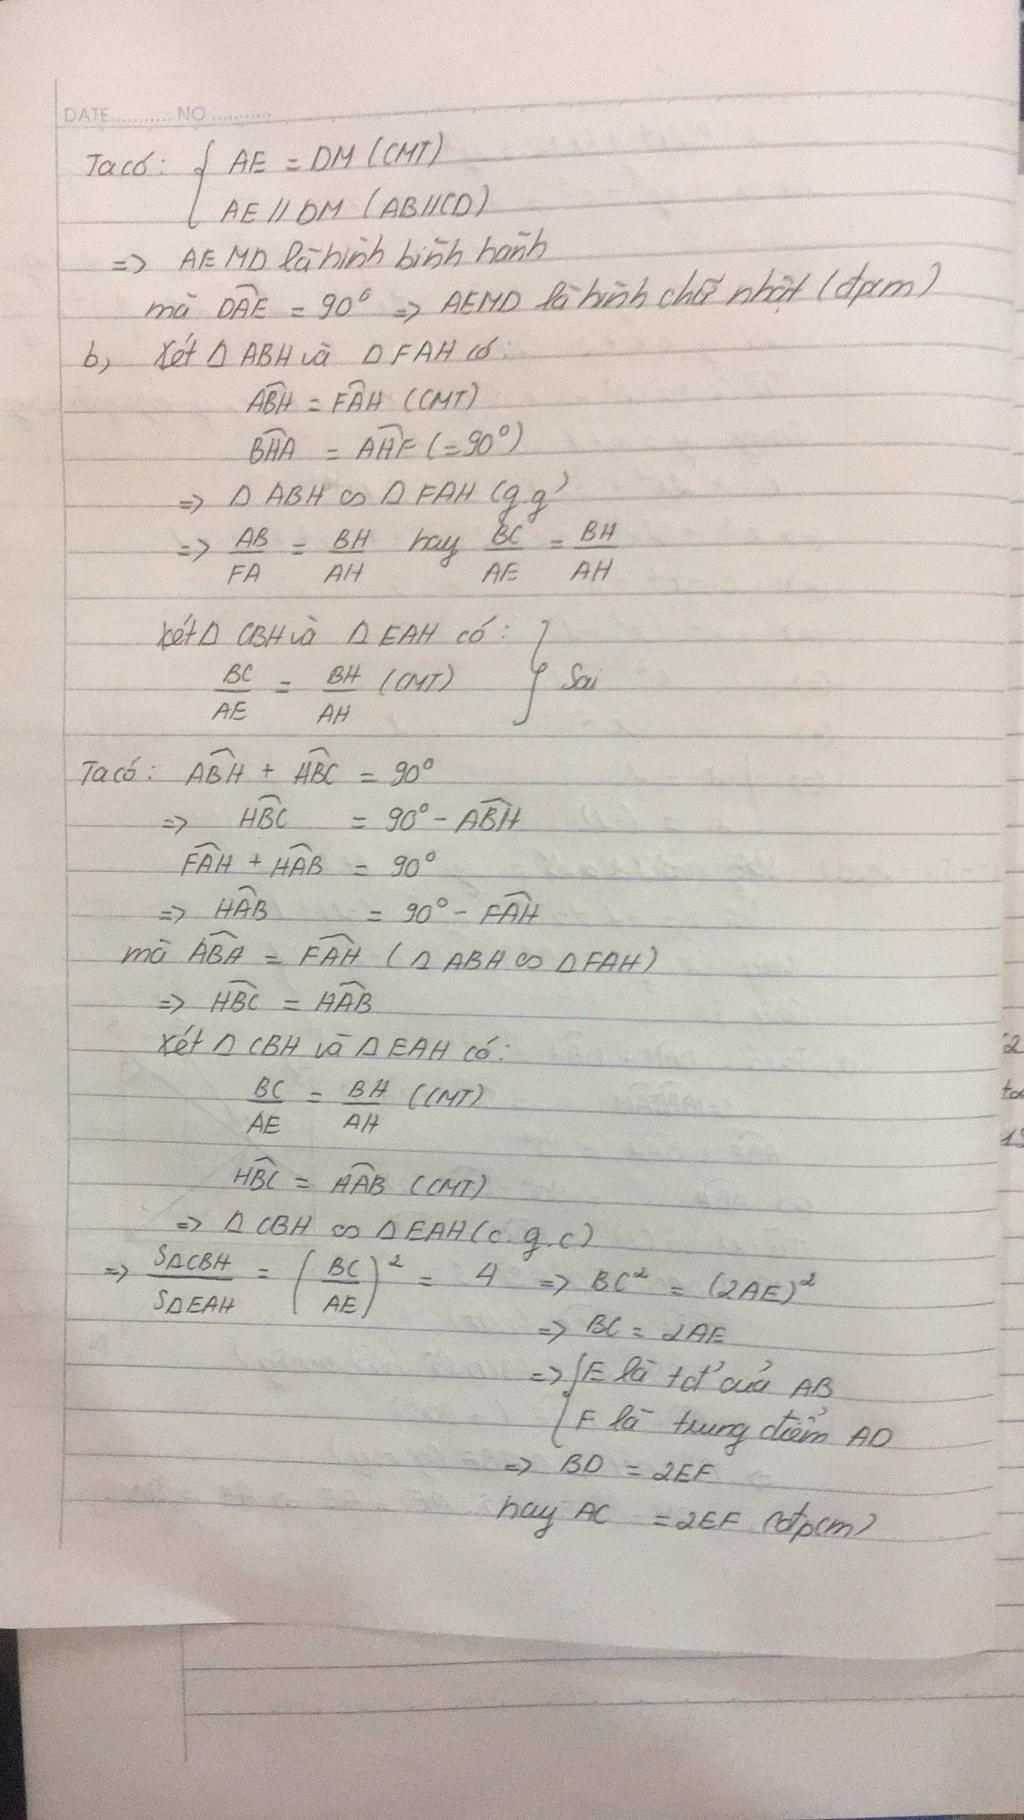 DATE........... NO ...........
Ta có: { AE = DM (CMT)
AE // DM (AB//CD)
=> AEMD là hình bình hành
mà \widehat{DAE} = 90° => AEMD là hình chữ nhật (đpcm)
b, Xét Δ ABH và Δ FAH có:
\widehat{ABH} = \widehat{FAH} (CMT)
\widehat{BHA} = \widehat{AHF} (=90°)
=> Δ ABH ∽ Δ FAH (g.g)
=> AB/FA = BH/AH hay BC/AE = BH/AH
Xét Δ CBH và Δ EAH có: } Sai
BC/AE = BH/AH (CMT)
Ta có: \widehat{ABH} + \widehat{HBC} = 90°
=> \widehat{HBC} = 90° - \widehat{ABH}
\widehat{FAH} + \widehat{HAB} = 90°
=> \widehat{HAB} = 90° - \widehat{FAH}
mà \widehat{ABH} = \widehat{FAH} (Δ ABH ∽ Δ FAH)
=> \widehat{HBC} = \widehat{HAB}
Xét Δ CBH và Δ EAH có:
BC/AE = BH/AH (CMT)
\widehat{HBC} = \widehat{HAB} (CMT)
=> Δ CBH ∽ Δ EAH (c.g.c)
=> SΔCBH/SΔEAH = (BC/AE)² = 4 => BC² = (2AE)²
=> BC = 2AE
=> { E là tđ' của AB
F là trung điểm AD
=> BD = 2EF
hay AC = 2EF (đpcm)